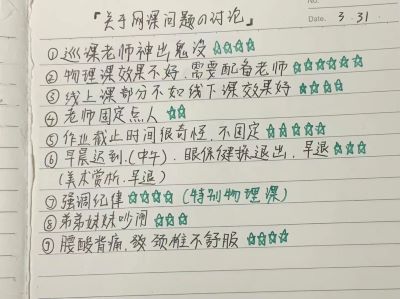 「关于网课问题の讨论」
No.
Date. 3.31
①巡课老师神出鬼没☆☆☆☆
②物理课效果不好,需要配备老师☆☆☆☆☆☆
③线上课部分不如线下课效果好☆☆☆☆☆
④老师固定点人☆☆
⑤作业截止时间很奇怪,不固定☆☆☆☆☆
⑥早晨迟到,(中午).眼保健操退出,早退☆☆☆☆
(美术赏析.早退)
⑦强调纪律☆☆☆☆(特别物理课)
⑧弟弟妹妹吵闹☆☆☆
⑨腰酸背痛,致颈椎不舒服☆☆☆☆